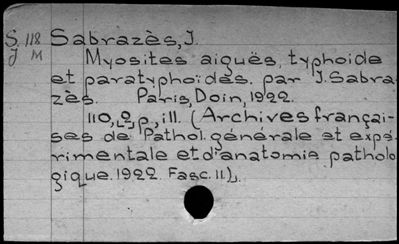 S. 118 Sabrazès, J.
J M Myosites aiguës, typhoide
et paratyphoides, par J. Sabra-
zès. Paris, Doin, 1922.
110, [2] p., ill. (Archives françai-
ses de Pathol. générale et expé-
rimentale et d'anatomie patholo
gique. 1922 Fasc. 11).